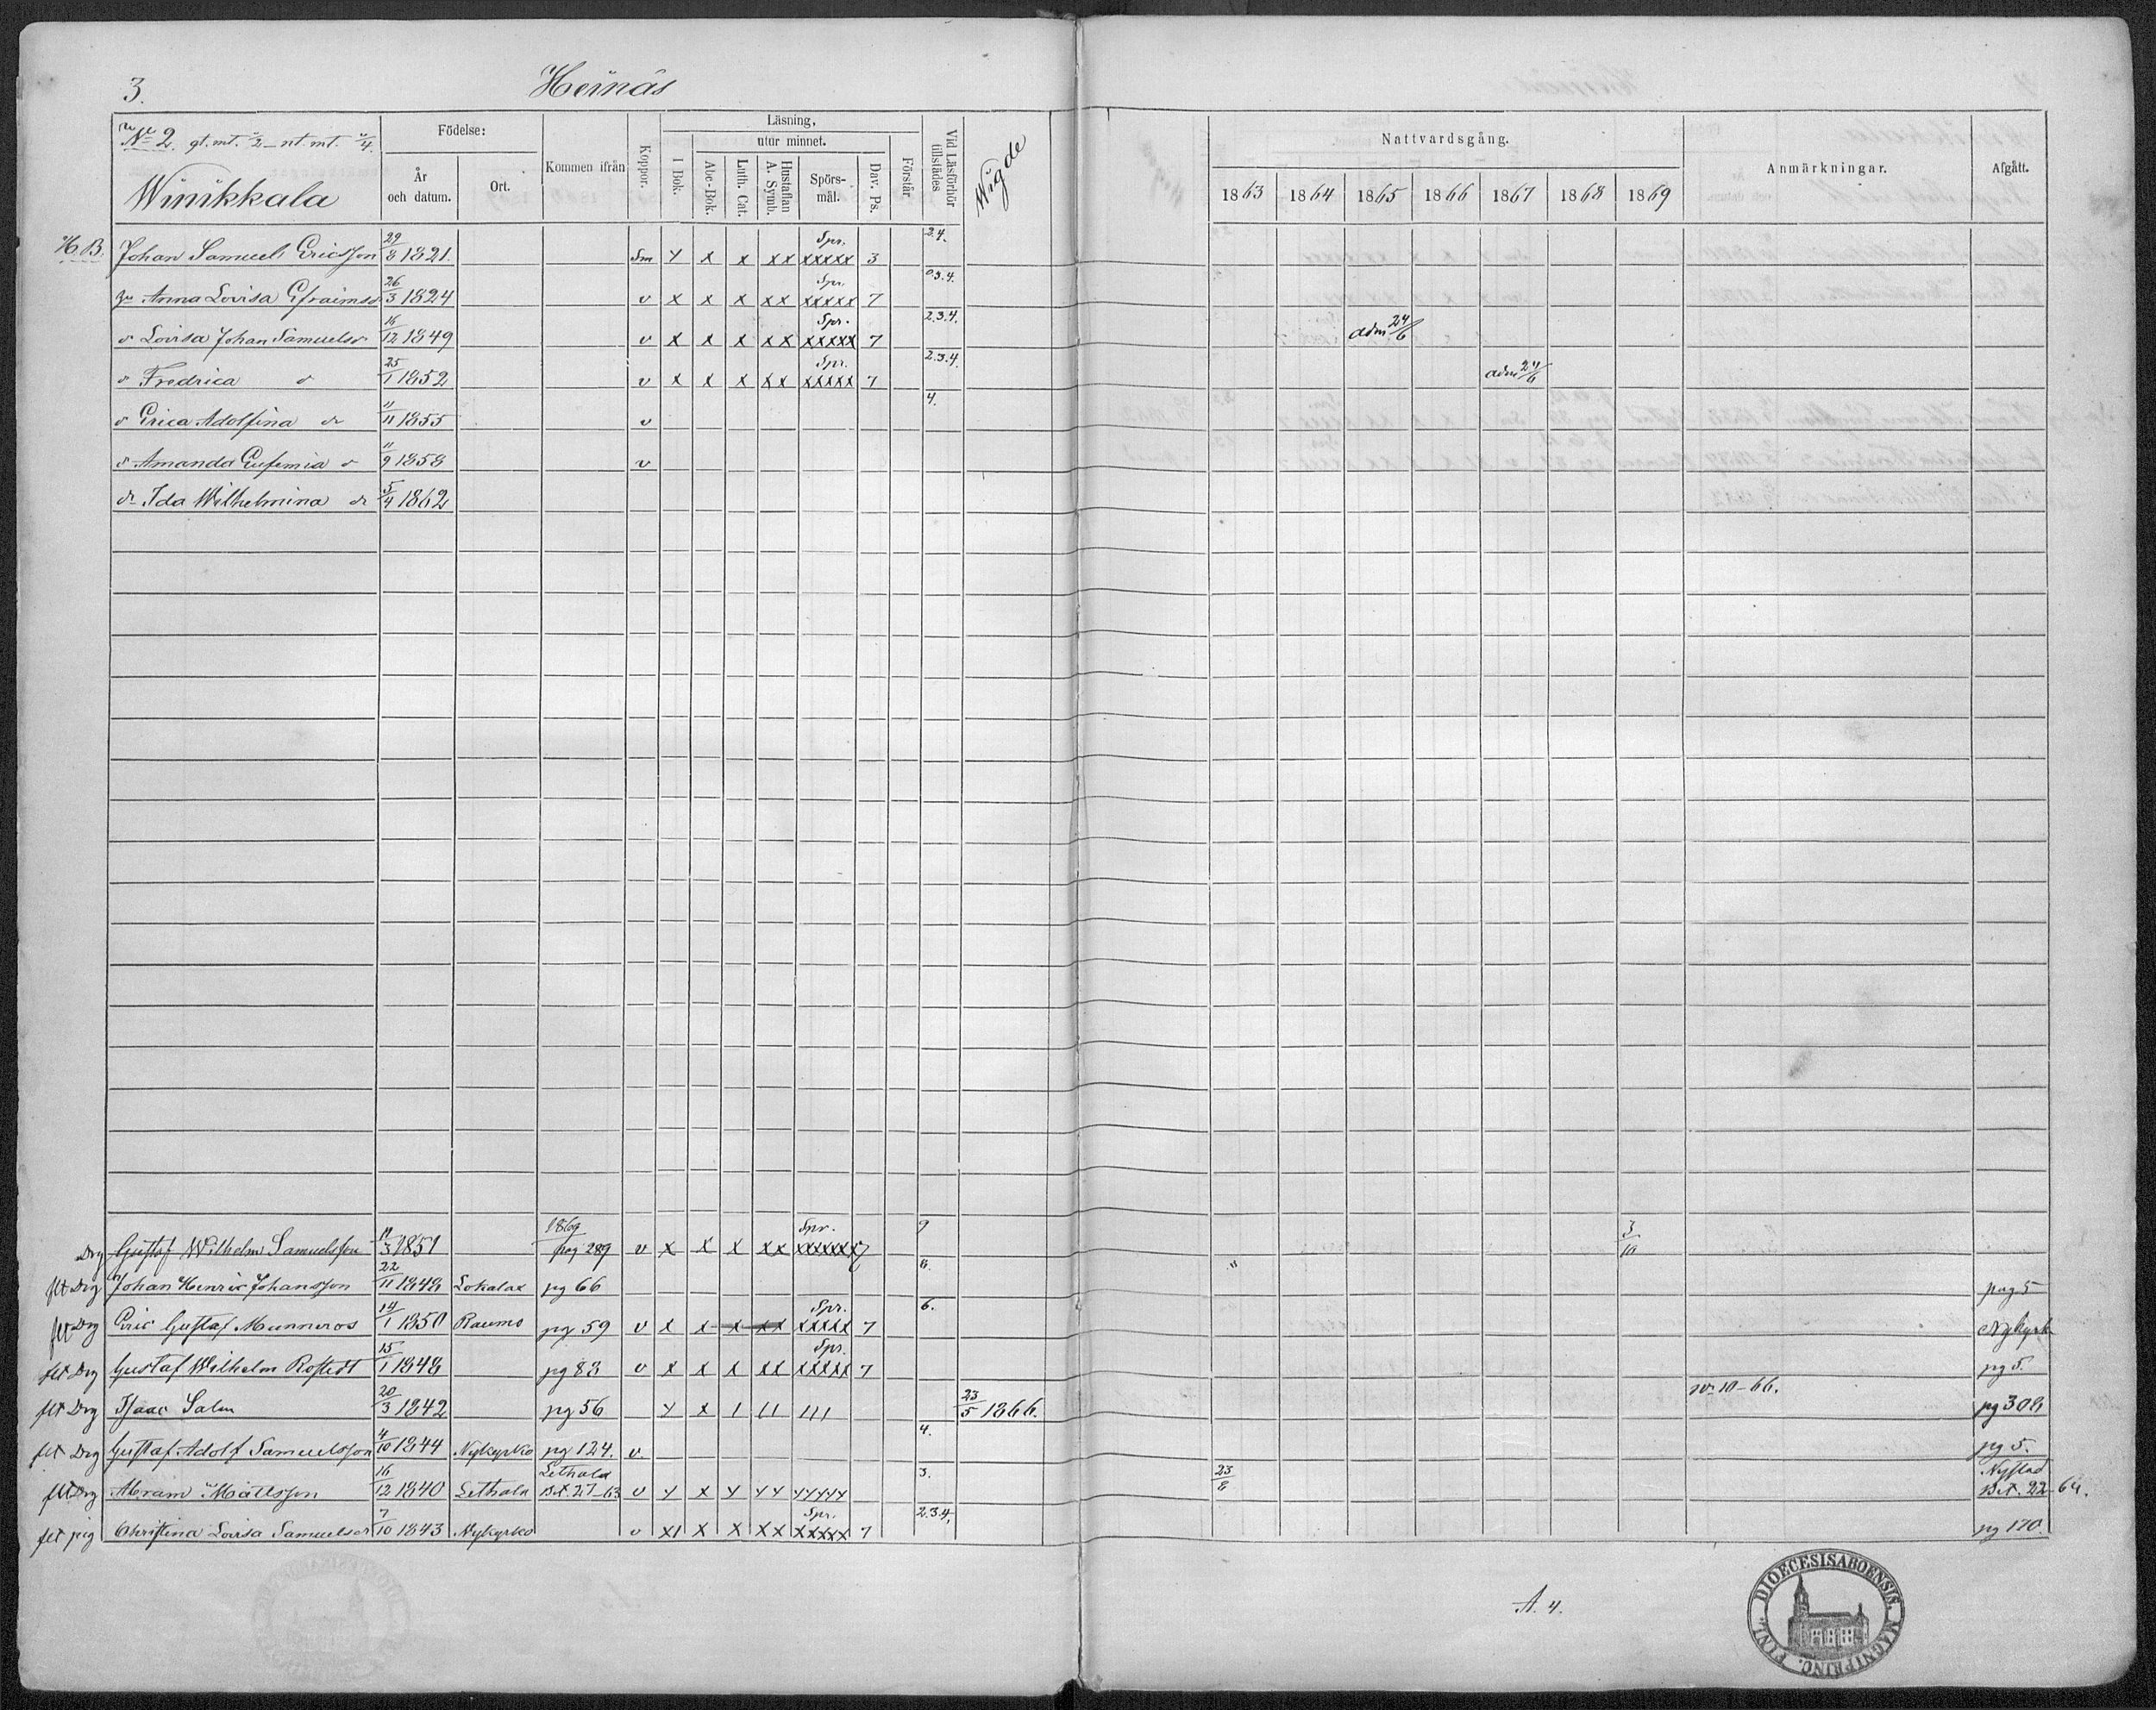 3.
Heinäs
No 2. gt. mt. 1/2 - nt. mt. 1/4.
Winikkala
Födelse:
År och datum.
Ort.
Kommen ifrån
Koppor.
Läsning,
I Bok.
utur minnet.
Abc-Bok.
Luth. Cat.
Hustaflan A. Symb.
Spörs-mål.
Dav. Ps.
Förstår
Vid Läsförhör tillstädes
Wigde
Nattvardsgång.
1863 1864 1865 1866 1867 1868 1869
Anmärkningar.
Afgått.
H.B. Johan Samuel Ericsson 29/8 1821. Sm y x x xx Spr. xxxxx 3 3.4.
hu Anna Lovisa Efraimsdr 26/3 1824 v x x x xx Spr. xxxxx 7 3.4.
dr Lovisa Johan Samuelsdr 16/12 1849 v x x x xx Spr. xxxxx 7 2.3.4. adm 24/6
dr Fredrica dr 25/1 1852 v x x x xx Spr. xxxxx 7 2.3.4. adm 24/6
dr Erica Adolfina dr 11/11 1855 v 4.
dr Amanda Eufemia dr 11/9 1858 v
dr Ida Wilhelmina dr 5/4 1862
Drg Gustaf Wilhelm Samuelsson 11/3 1851 1869 pag 289 v x x x xx Spr. xxxxxx 7 9 3/10
flt Drg Johan Henric Johansson 22/11 1848 Lokalax pg 66 8. " pag 5
flt Drg Eric Gustaf Munneros 14/1 1850 Raumo pg 59 v x x x xx Spr. xxxxx 7 6. Nykyrk
flt Drg Gustaf Wilhelm Rostedt 15/1 1848 pg 83 v x x x xx Spr. xxxxx 7 pg 5.
flt Drg Isaac Salen 20/3 1842 pg 56 y x 1 11 111 23/5 1866. 10-66. pg 308
flt Drg Gustaf Adolf Samuelsson 4/10 1844 Nykyrko pg 124. v. 4. pg 5.
flt Drg Abram Mattsson 16/12 1840 Lethala Lethala Bet. 27-63 v y x y yy yyyyy 3. 23/8 Nystad Bet. 22-64.
flt pig Christina Lovisa Samuelsdr 7/10 1843 Nykyrko v x1 x x xx Spr. xxxxx 7 2.3.4. pg 170.
A. 4.
DIOECESIS ABOENSIS. MAGNI PRINC. FINL.